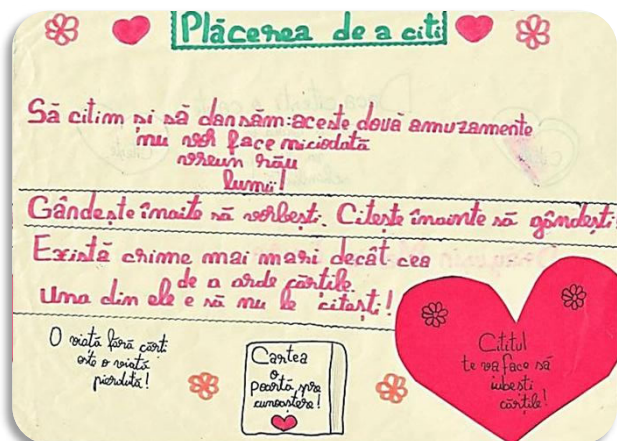 Plăcerea de a citi
Să citim și să dansăm: aceste două amuzamente
nu vor face niciodată
vreun rău
lumii!
Gândește înaite să vorbești. Citește înainte să gândești!
Există crime mai mari decât cea
de a arde cărțile.
Una din ele e să nu le citești!
O viată fără cărti
este o viată
pierdută!
Cartea
o
poartă spre
cunoaștere!
Cititul
te va face să
iubești
cărțile!